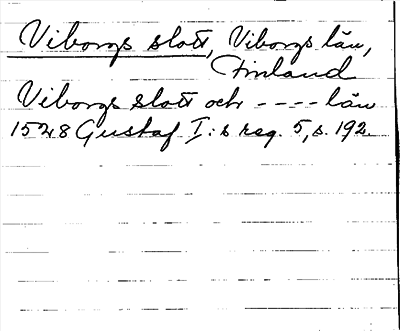 Viborgs slott, Viborgs län,
Finland
Viborgs slott och ---- län
1528 Gustaf I:s reg. 5, s. 192.